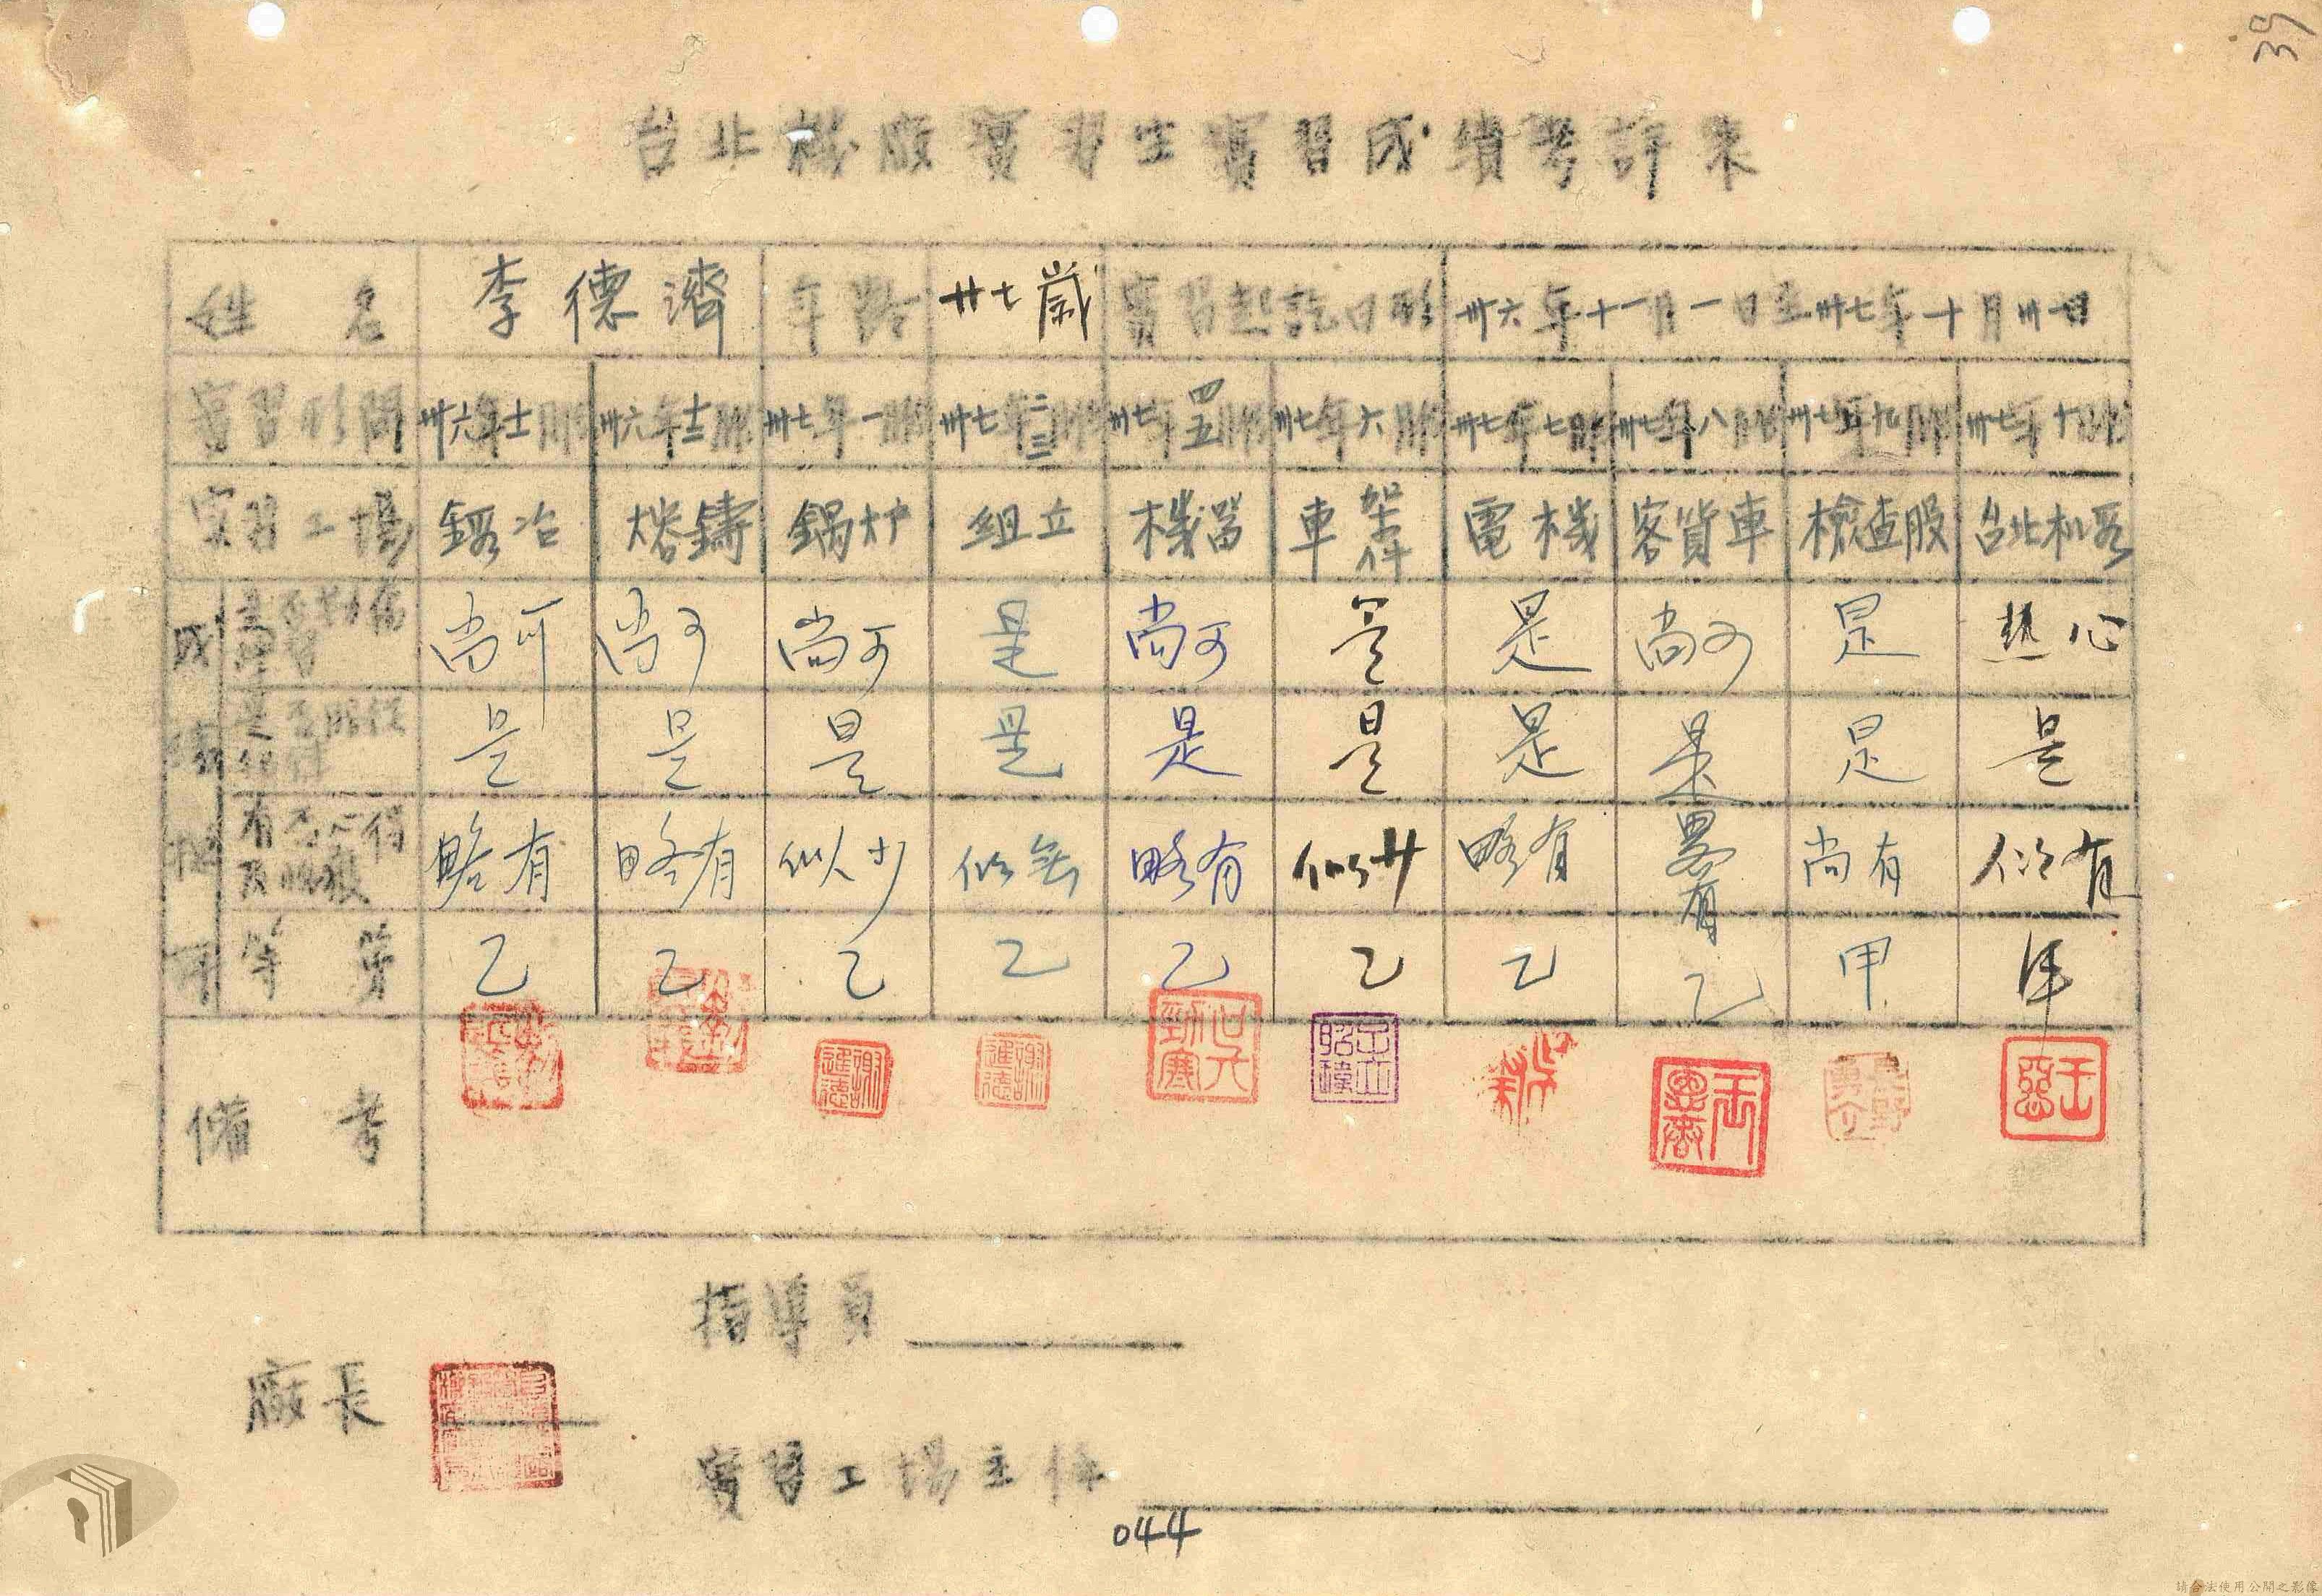 39
台北機廠實習生實習成績考評表
姓名 李德濟 年齡 廿七歲 實習起訖日期 卅六年十一月一日至卅七年十月卅一日
實習期間 卅六年十一月份 卅六年十二月份 卅七年一月份 卅七年二三月份 卅七年四五月份 卅七年六月份 卅七年七月份 卅七年八月份 卅七年九月份 卅七年十月份
實習工場 鍛冶 熔鑄 鍋炉 組立 機器 車架件 電機 客貨車 檢查股 台北机段
成績考評
是否勤奮學習 尚可 尚可 尚可 是 尚可 是 是 尚可 是 熱心
是否服從紀律 是 是 是 是 是 是 是 是 是 是
有否心得及收穫 略有 略有 似少 似無 略有 似少 略有 略有 尚有 似有
等第 乙 乙 乙 乙 乙 乙 乙 乙 甲 甲
備考
謝進德 謝進德
指導員
廠長
實習工場主任
044
請合法使用公開之影像